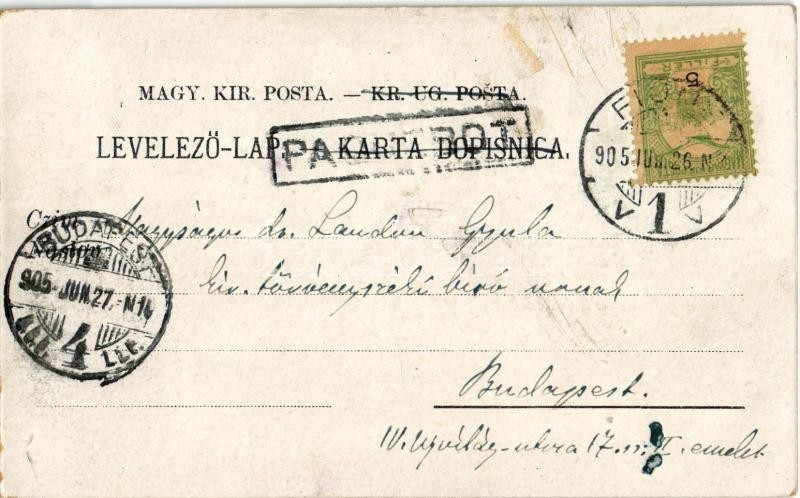 MAGY. KIR. POSTA. — KR. UG. POŠTA.
LEVELEZŐ-LAP. — KARTA DOPISNICA.
PAQUEBOT
FILLÉR
5
FIUME
905 JUN. 26. N
1
Czim
Naslov
BUDAPEST
905 JUN. 27. N 14
4
Nagyságos dr. Landau Gyula
kir. törvényszéki biró urnak
Budapest.
IV. Ujvilág-utcza 17. sz. II. emelet